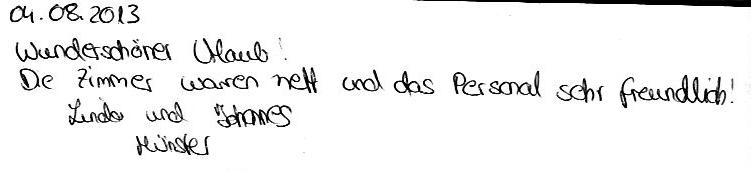 04.08.2013
Wunderschöner Urlaub!
Die Zimmer waren nett und das Personal sehr freundlich!
Linda und Johannes
Münster